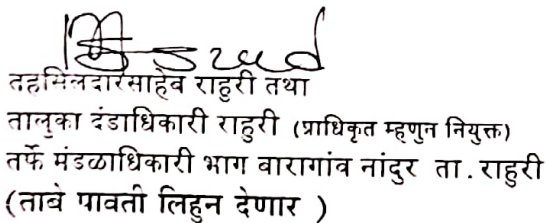 तहसिलदारसाहेब राहुरी तथा
तालुका दंडाधिकारी राहुरी (प्राधिकृत म्हणुन नियुक्त)
तर्फे मंडळाधिकारी भाग वारागांव नांदुर ता. राहुरी
(ताबे पावती लिहुन देणार )